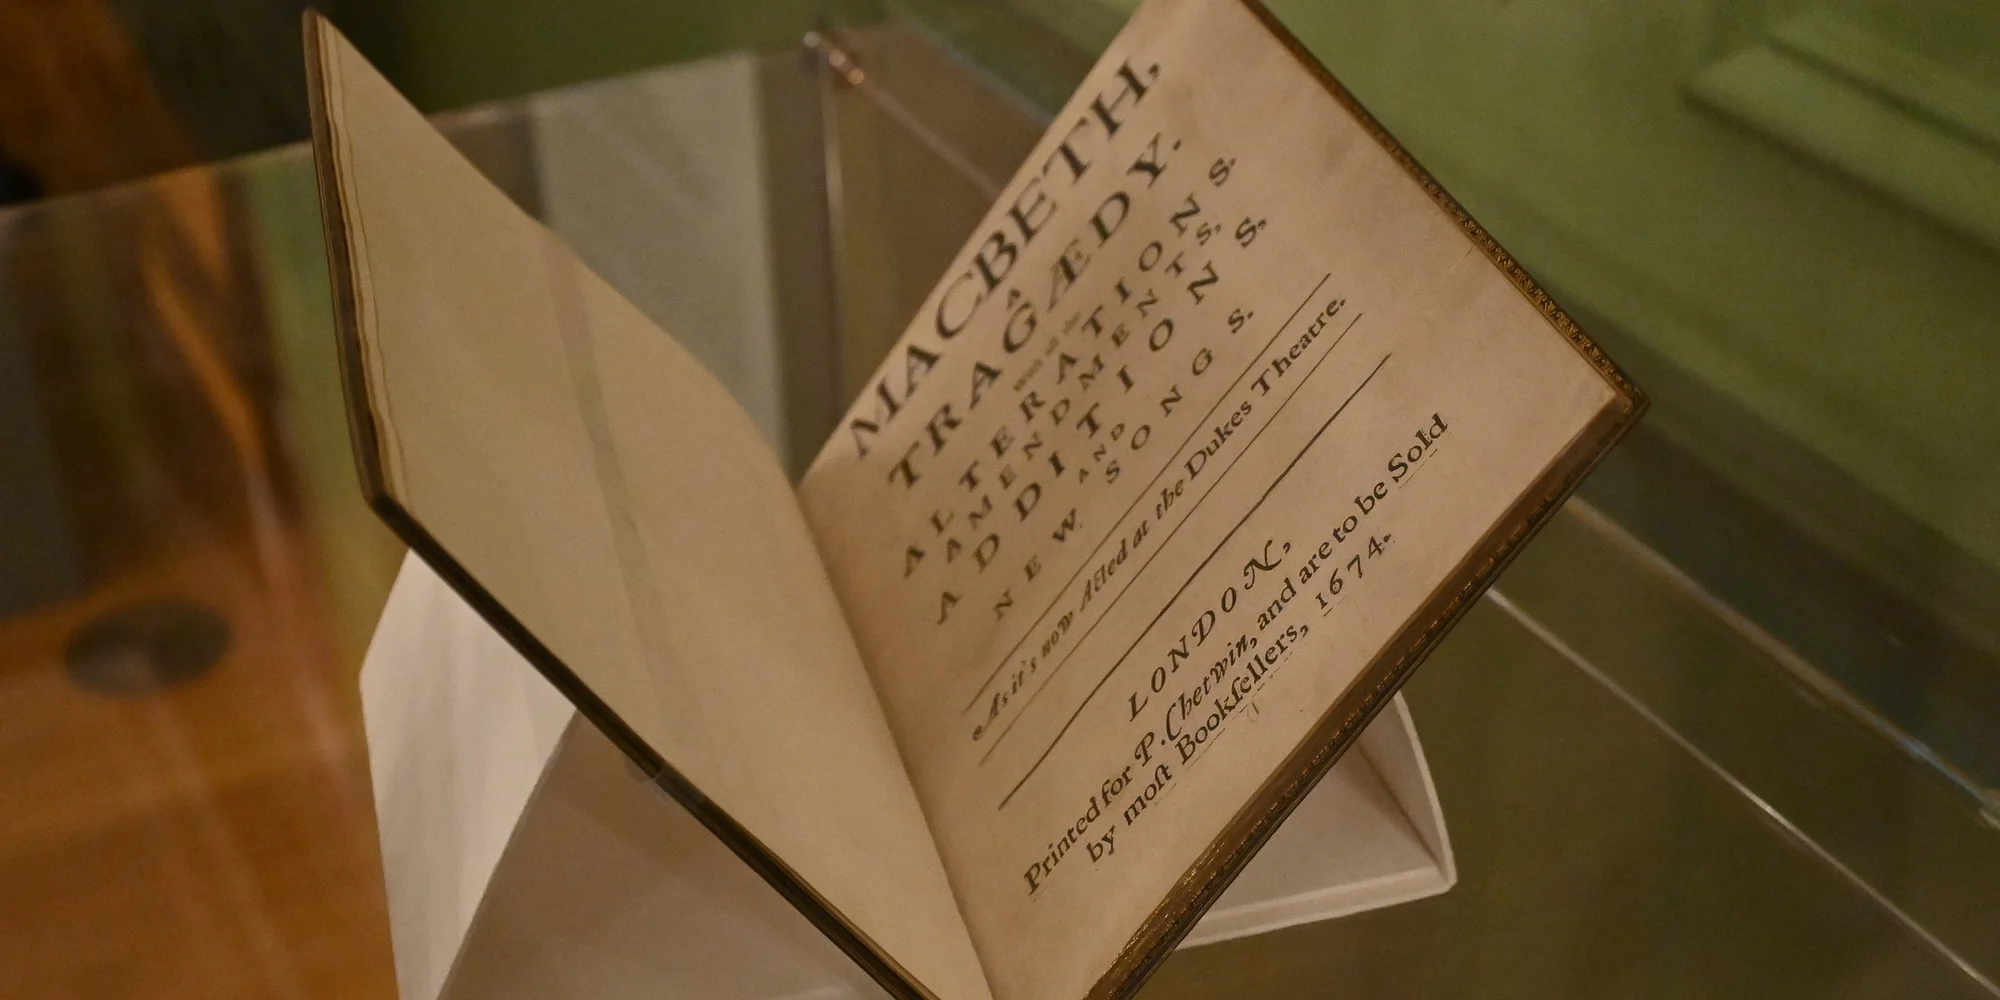 MACBETH,
A
TRAGÆDY.
With all the
ALTERATIONS,
AMENDMENTS,
ADDITIONS,
AND
NEW SONGS.
As it's now Acted at the Dukes Theatre.
LONDON,
Printed for P. Chetwin, and are to be Sold
by moſt Bookſellers, 1674.